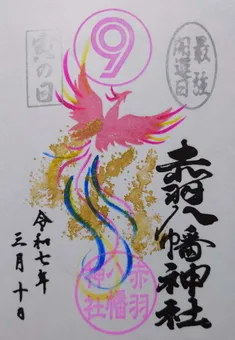 9
最強
開運日
寅の日
赤羽八幡神社
赤羽
八幡
神社
令和七年
三月十日